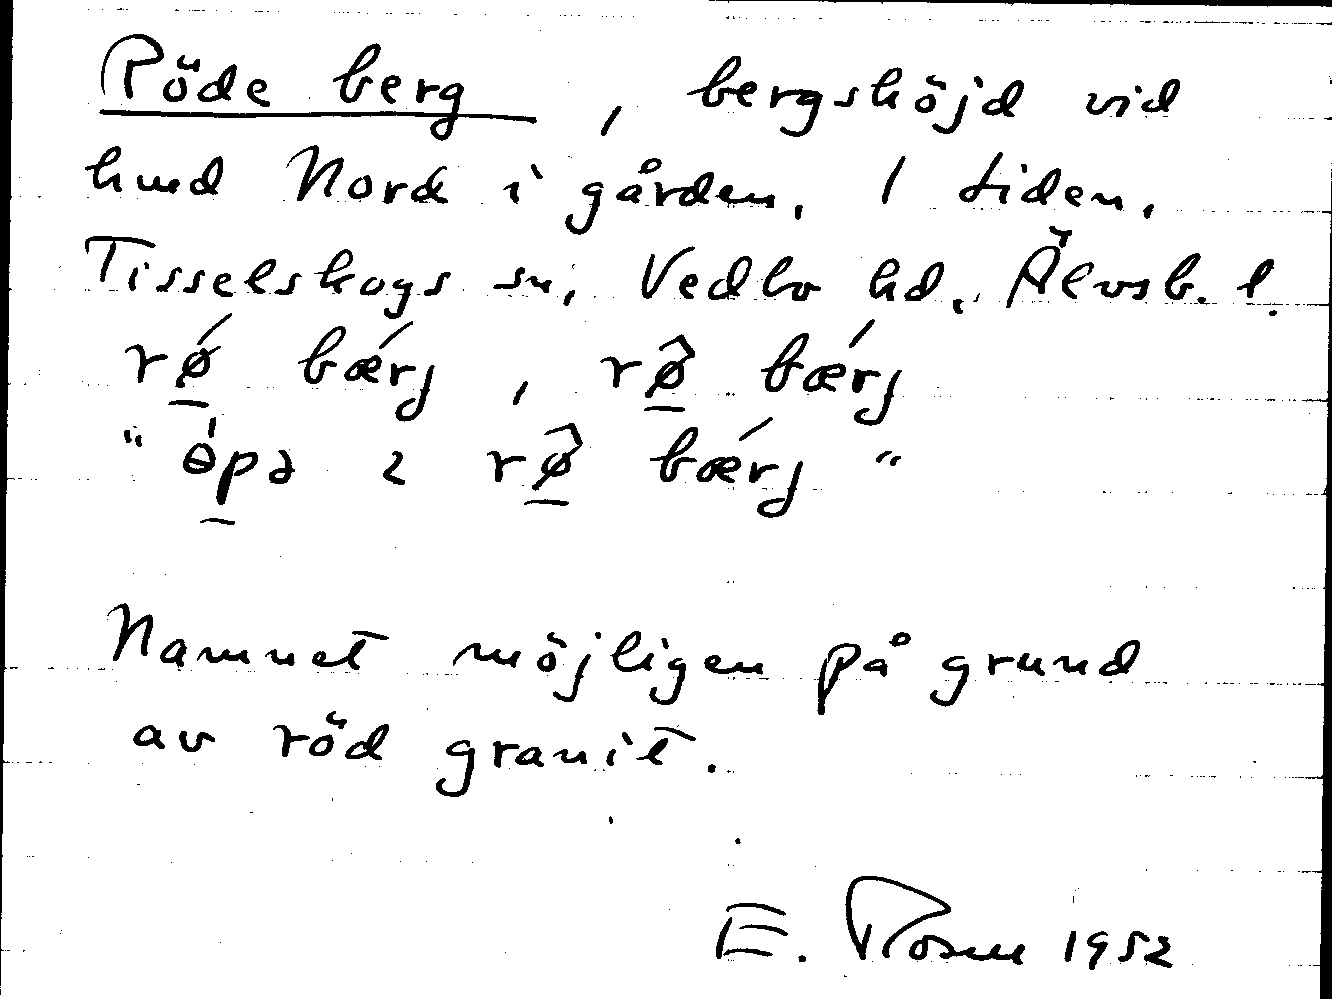 Röde berg, bergshöjd vid
hmd Nord i gården, 1 tiden,
Tisselskogs sn, Vedbo hd, Älvsb. l.
rǿ̲ bǽrj, rø̲̂ bǽrj
" ɵ́p̲ə 2 rø̲̂ bǽrj "
Namnet möjligen på grund
av röd granit.
E. Rosell 1952